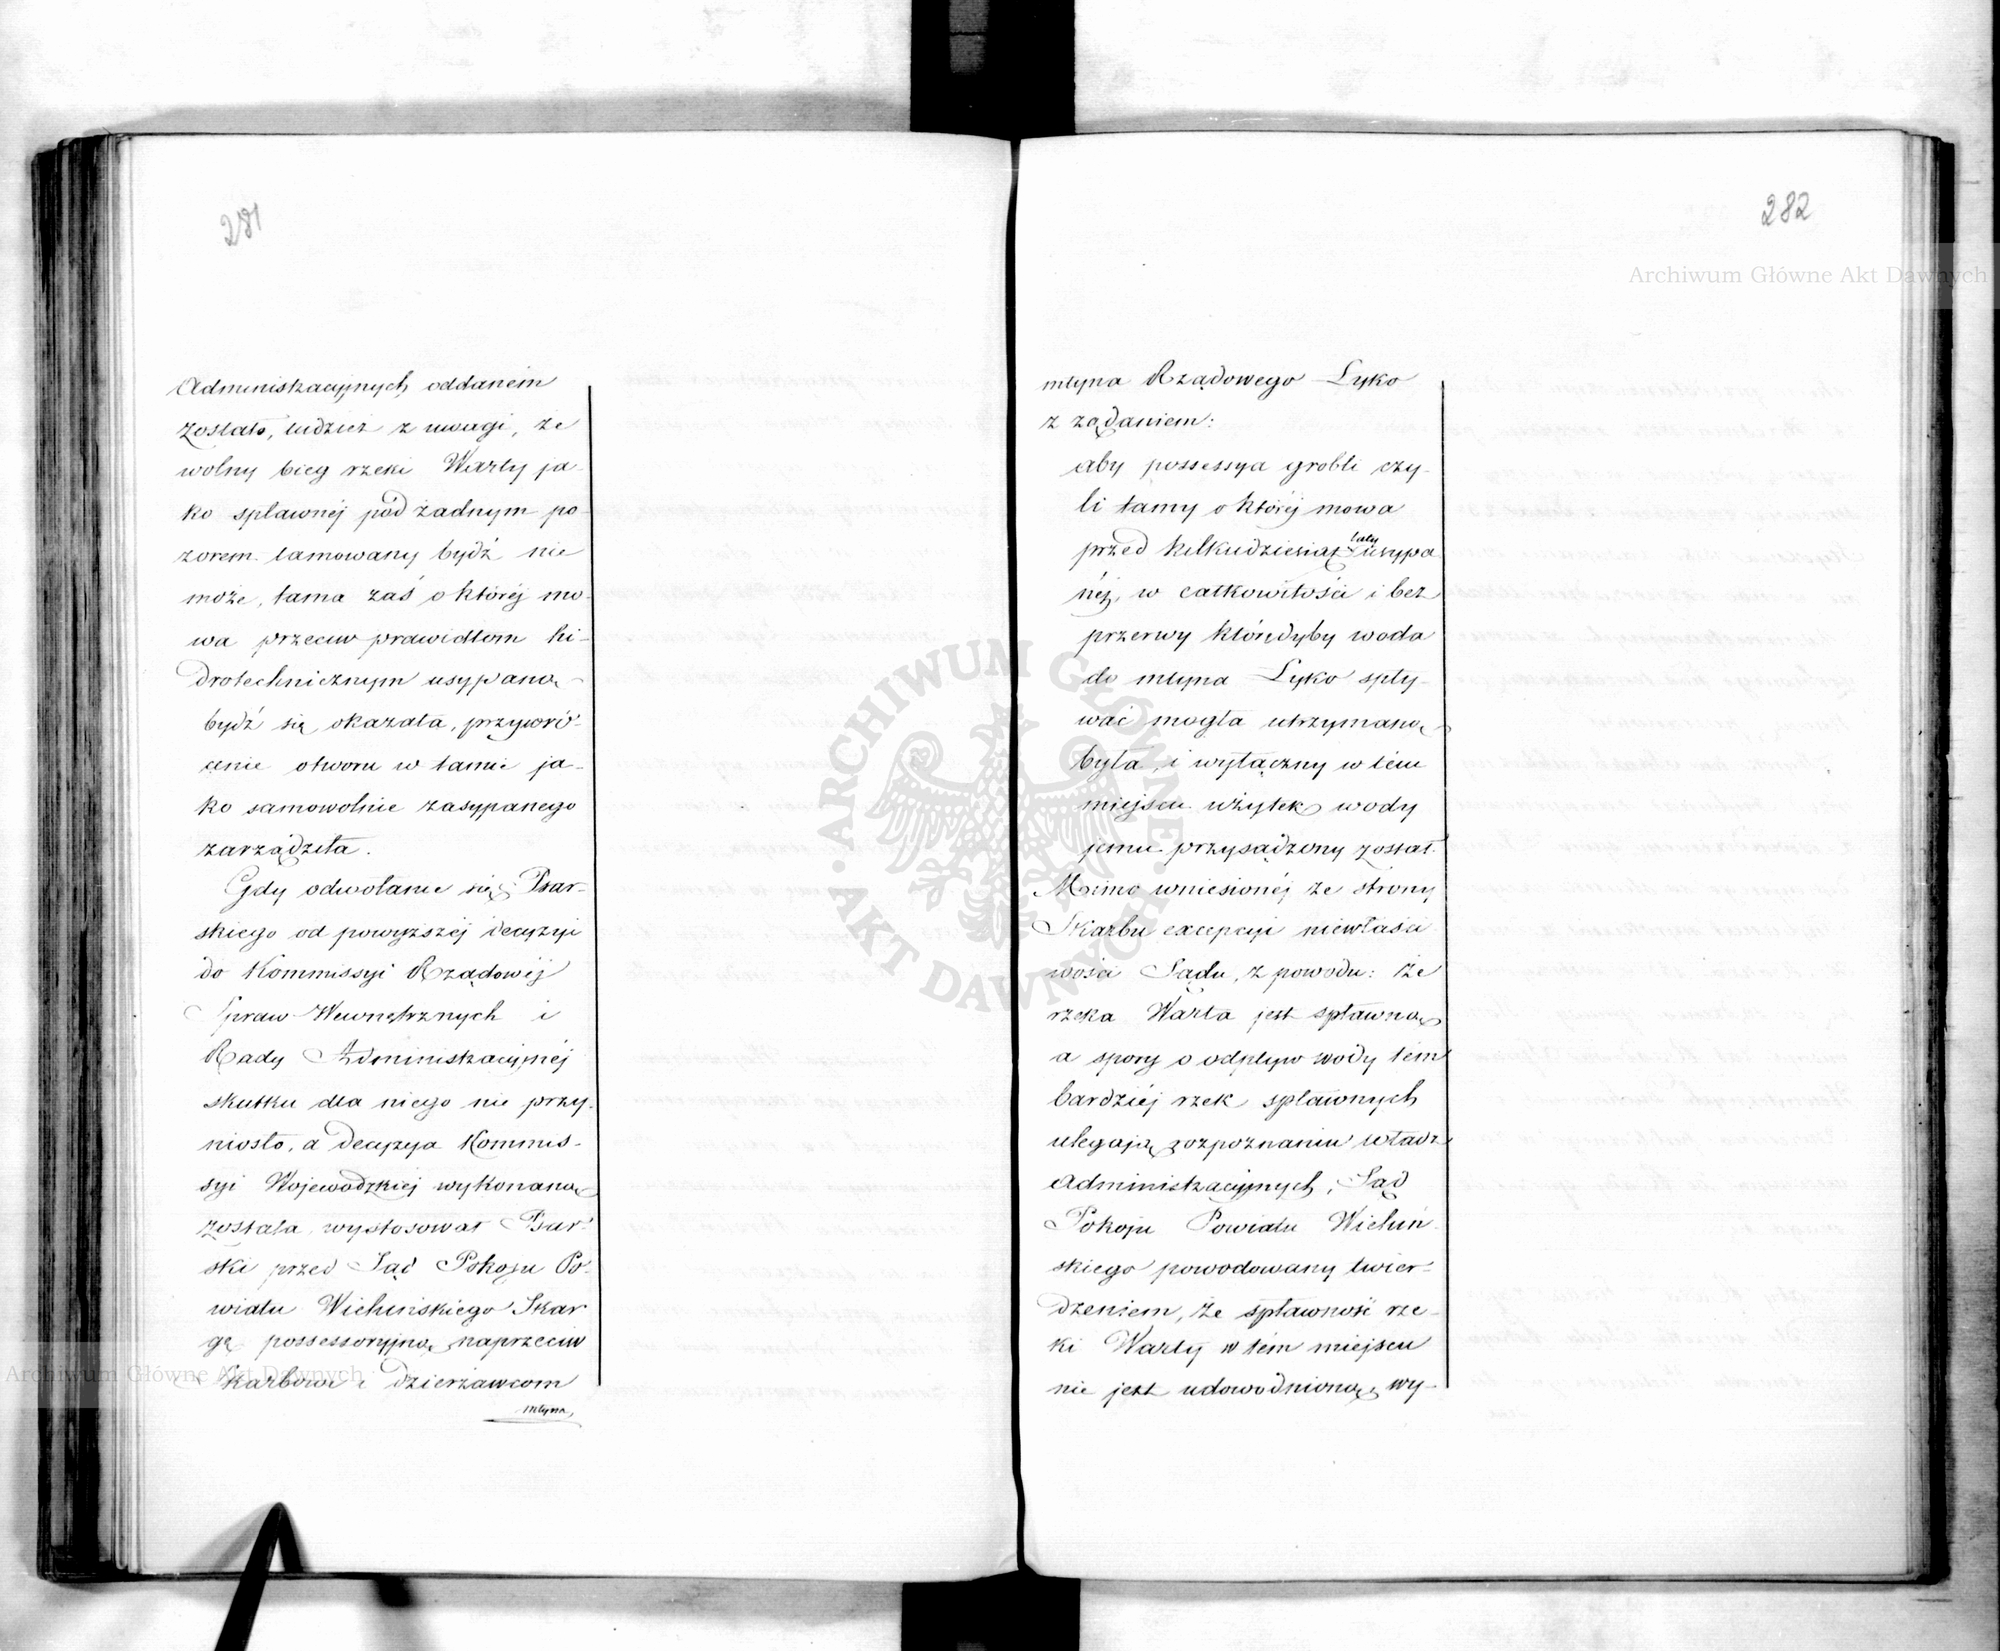 281
Administracyjnych oddanem
zostało, tudzież z uwagi, że
wolny bieg rzeki Warty ja-
ko spławnéj pod żadnym po-
zorem tamowany bydź nie
może, tama zaś o któréj mo-
wa przeciw prawidłom hi-
drotechnicznym usypaną
bydź się okazała, przywró-
cenie otworu w tamie ja-
ko samowolnie zasypanego
zarządziła.
Gdy odwołanie się Psar-
skiego od powyższéj decyzyi
do Kommissyi Rządowéj
Spraw Wewnętrznych i
Rady Administracyjnéj
skutku dla niego nie przy-
niosło, a decyzya Kommis-
syi Wojewódzkiej wykonaną
została, wystosował Psar-
ski przed Sąd Pokoju Po-
wiatu Wieluńskiego Skar
gę possessoryjną naprzeciw
Skarbowi i dzierżawcom
młyna,
282
młyna Rządowego Łyko
z żądaniem:
aby possessya grobli czy-
li tamy o któréj mowa
przed kilkudziesiąt laty usypa
néj, w całkowitości i bez
przerwy którędyby woda
do młyna Łyko spły-
wać mogła utrzymaną
była, i wyłączny w tém
miejscu użytek wody
jemu przysądzony został.
Mimo wniesionéj ze strony
Skarbu excepcyi niewłaści
wości Sądu, z powodu: że
rzeka Warta jest spławną
a spory o odpływ wody tém
bardziéj rzek spławnych
ulegają rozpoznaniu władz
Administracyjnych, Sąd
Pokoju Powiatu Wieluń-
skiego powodowany twier-
dzeniem, że spławność rze-
ki Warty w tém miejscu
nie jest udowodnioną, wy-
Archiwum Główne Akt Dawnych
Archiwum Główne Akt Dawnych
ARCHIWUM GŁÓWNE · AKT DAWNYCH ·